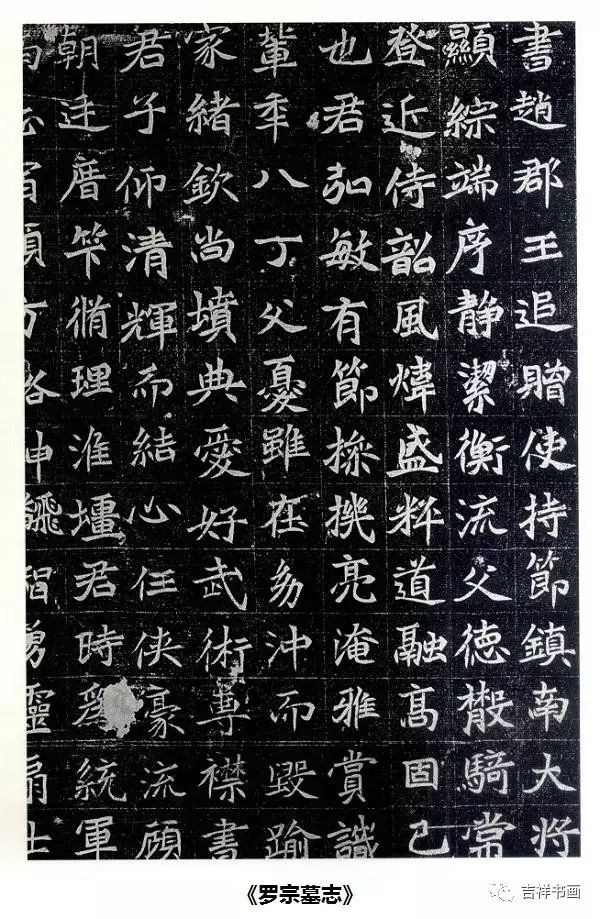 書趙郡王追贈使持節鎮南大將
顯綜端序靜潔衡流父德散騎常
登近侍韶風煒盛粹道融高固已
也君弘敏有節操機亮淹雅賞識
輩秊八丁父憂雖在幼沖而毀踰
家緒欽尚墳典愛好武術專襟書
君子仰清輝而結心任侠豪流顧
朝廷厝笇脩理淮壃君時爲統軍
《罗宗墓志》
吉祥书画